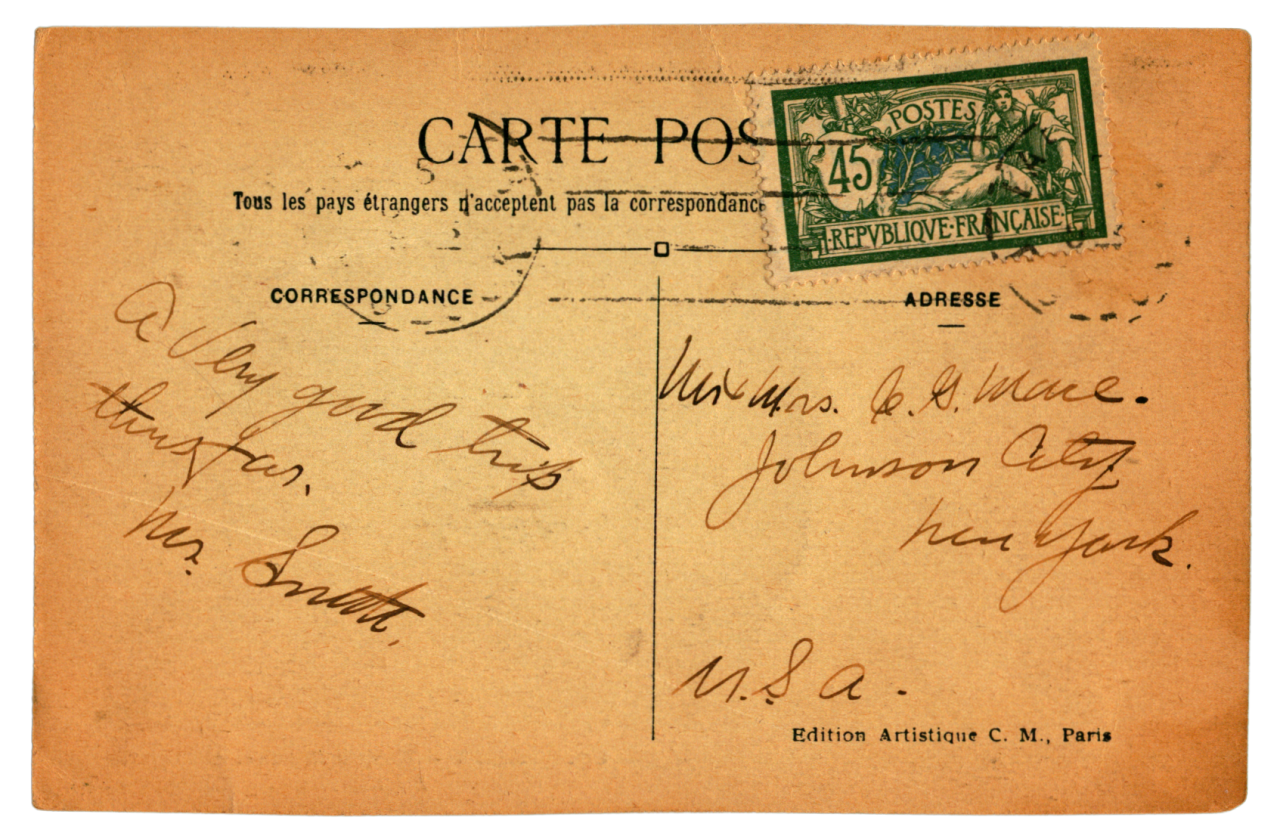 CARTE POS
Tous les pays étrangers n'acceptent pas la correspondance
POSTES
45
REPVBLIQVE·FRANÇAISE
CORRESPONDANCE
ADRESSE
A Very good trip
thus far.
Mr.
Mr & Mrs. G.
Johnson City
New York.
U.S.A.
Edition Artistique C. M., Paris